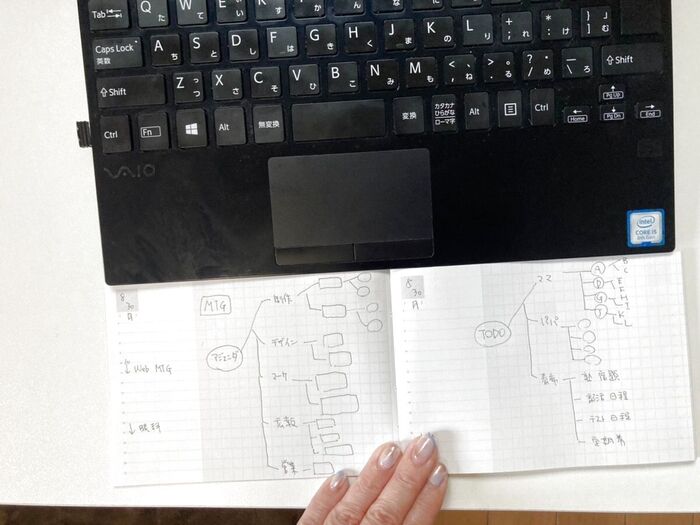 Tab
Q た
W て
E い
Caps Lock 英数
A ち
S と
D し
F は
G き
H く
J ま
K の
L り
+ ; れ
* : け
} 」 ] む
Shift
Z つ っ
X さ
C そ
V ひ
B こ
N み
M も
< 、 , ね
> 。 . る
? ・ / め
_ \ ろ
Shift
Ctrl
Fn
Alt
無変換
変換
カタカナ ひらがな ローマ字
Alt
Ctrl
Home
Pg Up
Pg Dn
End
VAIO
intel
CORE i5
8th Gen
8
30
月
MTG
アジェンダ
制作
デザイン
マーケ
広報
営業
Web MTG
眼科
8
30
月
TODO
ママ
A
B
C
D
E
F
G
H
I
J
K
L
パパ
塾 宿題
部活 日程
テスト 日程
定期券